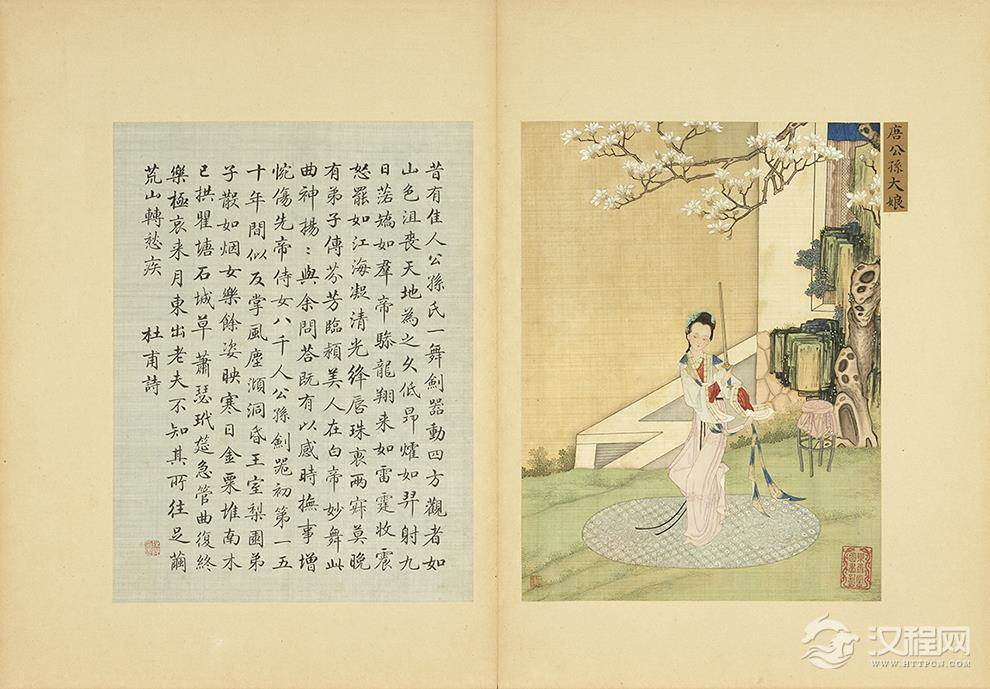 唐公孫大娘
昔有佳人公孫氏一舞劍器動四方觀者如
山色沮喪天地為之久低昂㸌如羿射九
日落矯如羣帝驂龍翔来如雷霆收震
怒罷如江海凝清光絳唇珠袖兩寂莫晚
有弟子傳芬芳臨潁美人在白帝妙舞此
曲神揚〻與余問荅既有以感時撫事增
惋傷先帝侍女八千人公孫劍器初第一五
十年間似反掌風塵澒洞昏王室梨園弟
子散如烟女樂餘姿映寒日金粟堆南木
已拱瞿塘石城草蕭瑟玳筵急管曲復終
樂極哀来月東出老夫不知其所往足繭
荒山轉愁疾
杜甫詩
汉程网
WWW.HTTPCN.COM